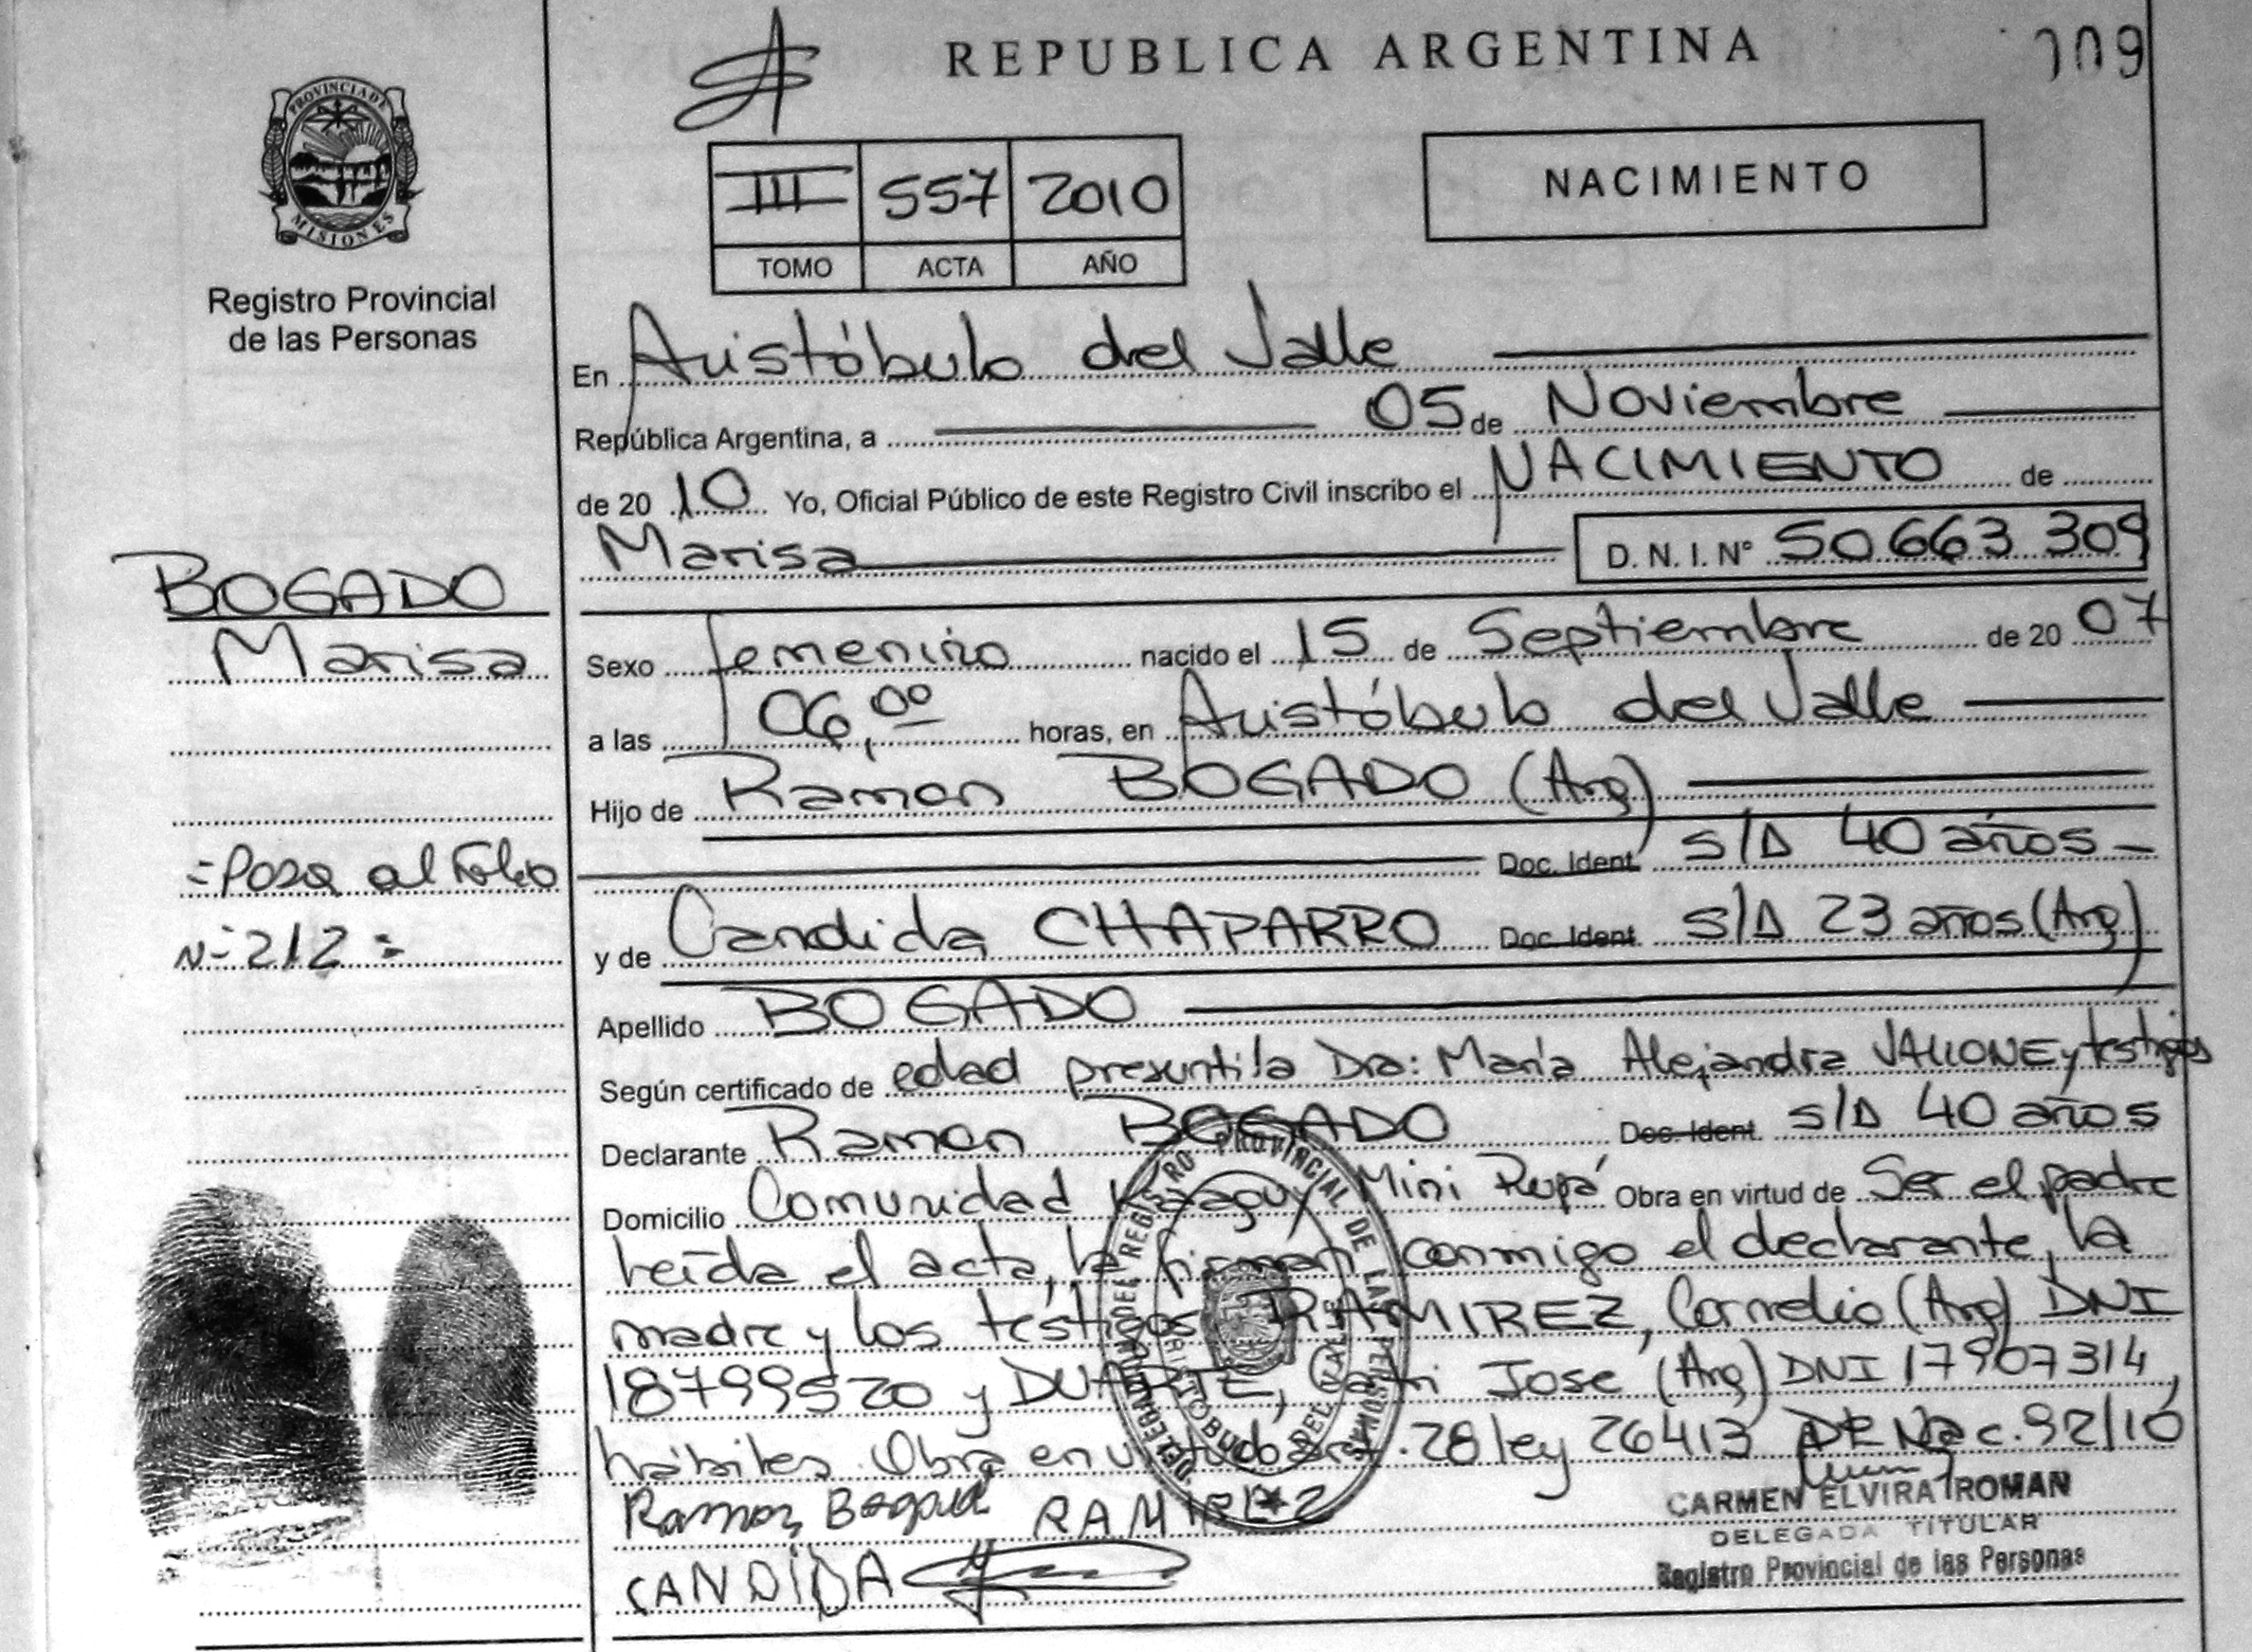 REPUBLICA ARGENTINA
109
PROVINCIA DE
MISIONES
Registro Provincial
de las Personas
III 557 2010
TOMO ACTA AÑO
NACIMIENTO
En Aristóbulo del Valle
República Argentina, a 05 de Noviembre
de 20 10 Yo, Oficial Público de este Registro Civil inscribo el NACIMIENTO de
Marisa D. N. I. N° 50 663 309
BOGADO
Marisa
Sexo femenino nacido el 15 de Septiembre de 20 07
a las 06,00 horas, en Aristóbulo del Valle
Hijo de Ramon BOGADO (Arg)
Doc. Ident. S/D 40 años
=Pasa al Folio
N=212=
y de Candida CHAPARRO Doc. Ident. S/D 23 años (Arg)
Apellido BOGADO
Según certificado de edad presuntiva Dra: María Alejandra y testigos
Declarante Ramon BOGADO Doc. Ident. S/D 40 años
Domicilio Comunidad Kaaguy Mini Rupá Obra en virtud de Ser el padre
leída el acta, la firman conmigo el declarante, la
madre y los testigos RAMIREZ, Cornelio (Arg) DNI
18799520 y DUARTE, Jose (Arg) DNI 17907314,
hábiles. Obra en virtud art. 28 ley 26413 Nac. 92/10
Ramon Bogad RAMIREZ
CANDIDA
DELEGACION DEL REGISTRO PROVINCIAL DE LAS PERSONAS
ARISTOBULO DEL VALLE
CARMEN ELVIRA ROMAN
DELEGADA TITULAR
Registro Provincial de las Personas